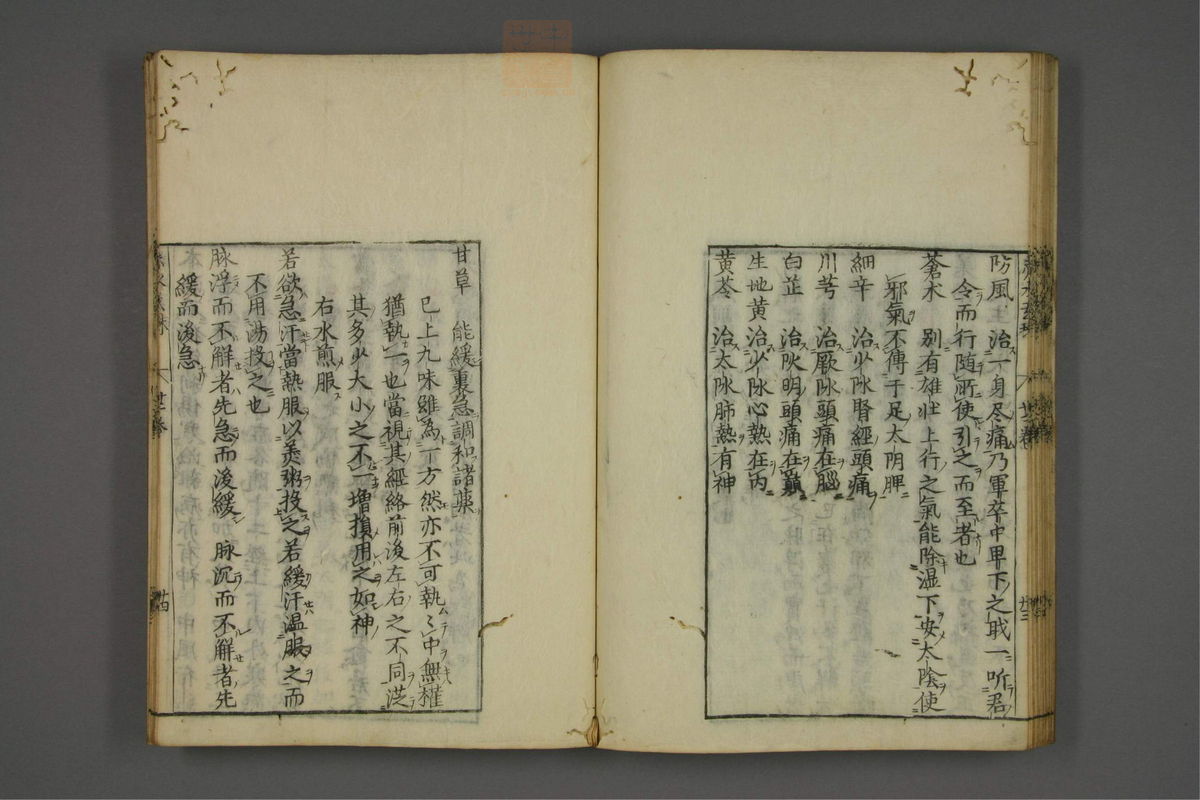 防風 主治一身尽痛乃軍卒中卑下之職一听君
令而行随所使引之而至者也
蒼朮 別有雄壮上行之氣能除湿下安太陰使
邪氣不傳于足太阴脾
細辛 治少陰腎經頭痛
川芎 治厥陰頭痛在腦
白芷 治陽明頭痛在額
生地黄 治少陰心熱在内
黄芩 治太陰肺熱有神
甘草 能緩裏急調和諸藥
已上九味雖為一方然亦不可執〻中無權
猶執一也當視其經絡前後左右之不同從
其多少大小之不一増損用之如神
右水煎服
若欲急汗當熱服以羙粥投之若緩汗温服之而
不用湯投之也
脉浮而不解者先急而後緩 脉沉而不解者先
緩而後急